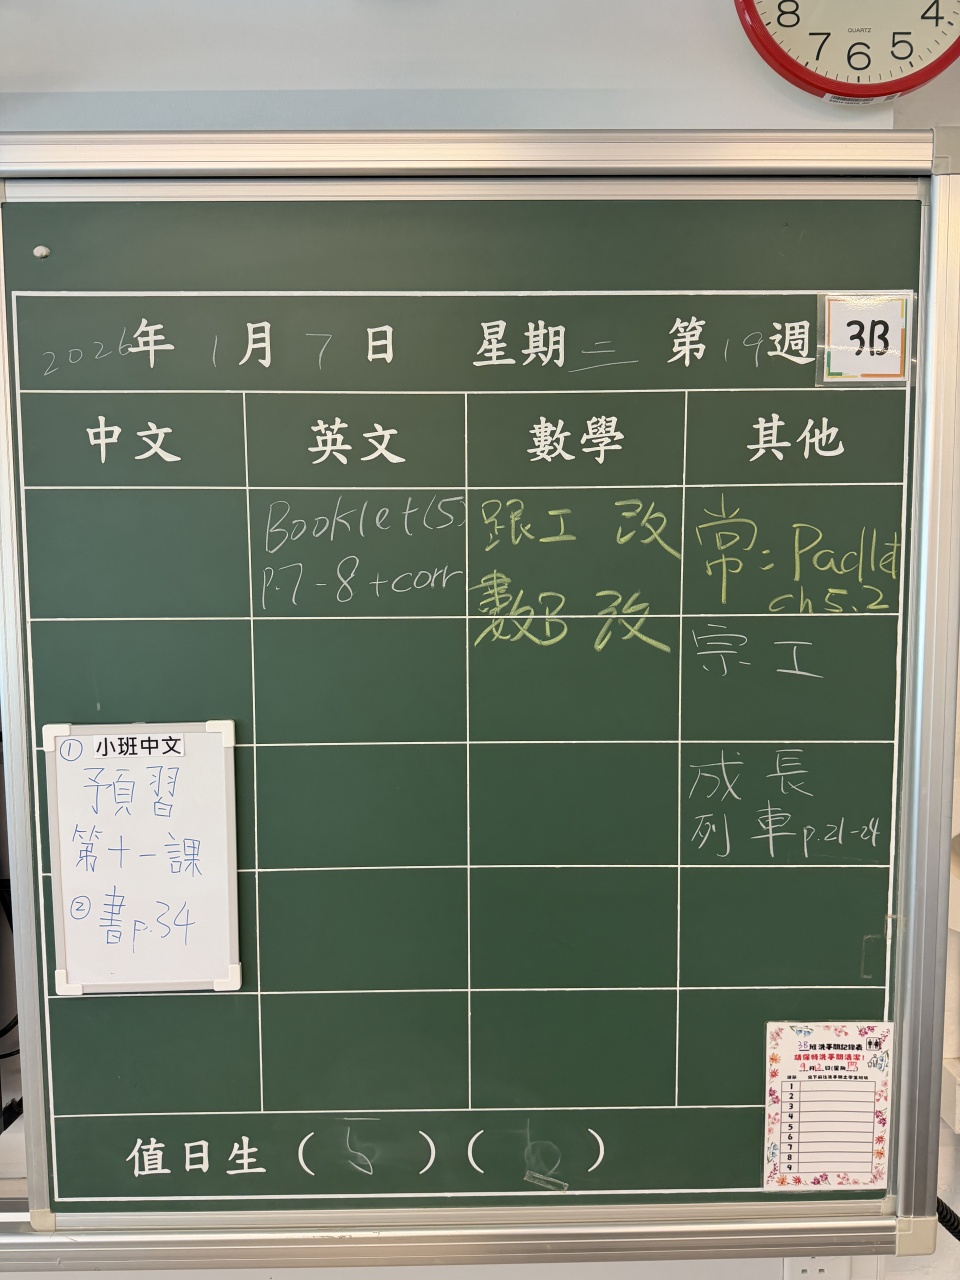 8 7 6 5 4
QUARTZ
2026年 1月 7日 星期三 第19週 3B
中文 英文 數學 其他
Booklet(5)
p.7-8 + corr
跟工 改
數B 改
常: Padlet
ch5.2
宗 工
成長
列車 p.21-24
① 小班中文
預習
第十一課
② 書p.34
3B班洗手間記錄表
請保持洗手間清潔!
9月2日(星期四)
1
2
3
4
5
6
7
8
9
值日生 ( 5 ) ( )